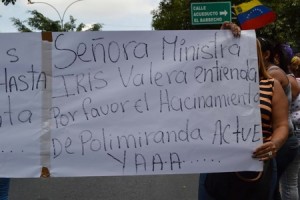 CALLE
ACUEDUCTO
EL BARRETO
S
HASTA
ta
Señora Ministra
IRIS Valera entienda
Por favor el Hacinamiento
De Polimiranda Actue
YAAA.....